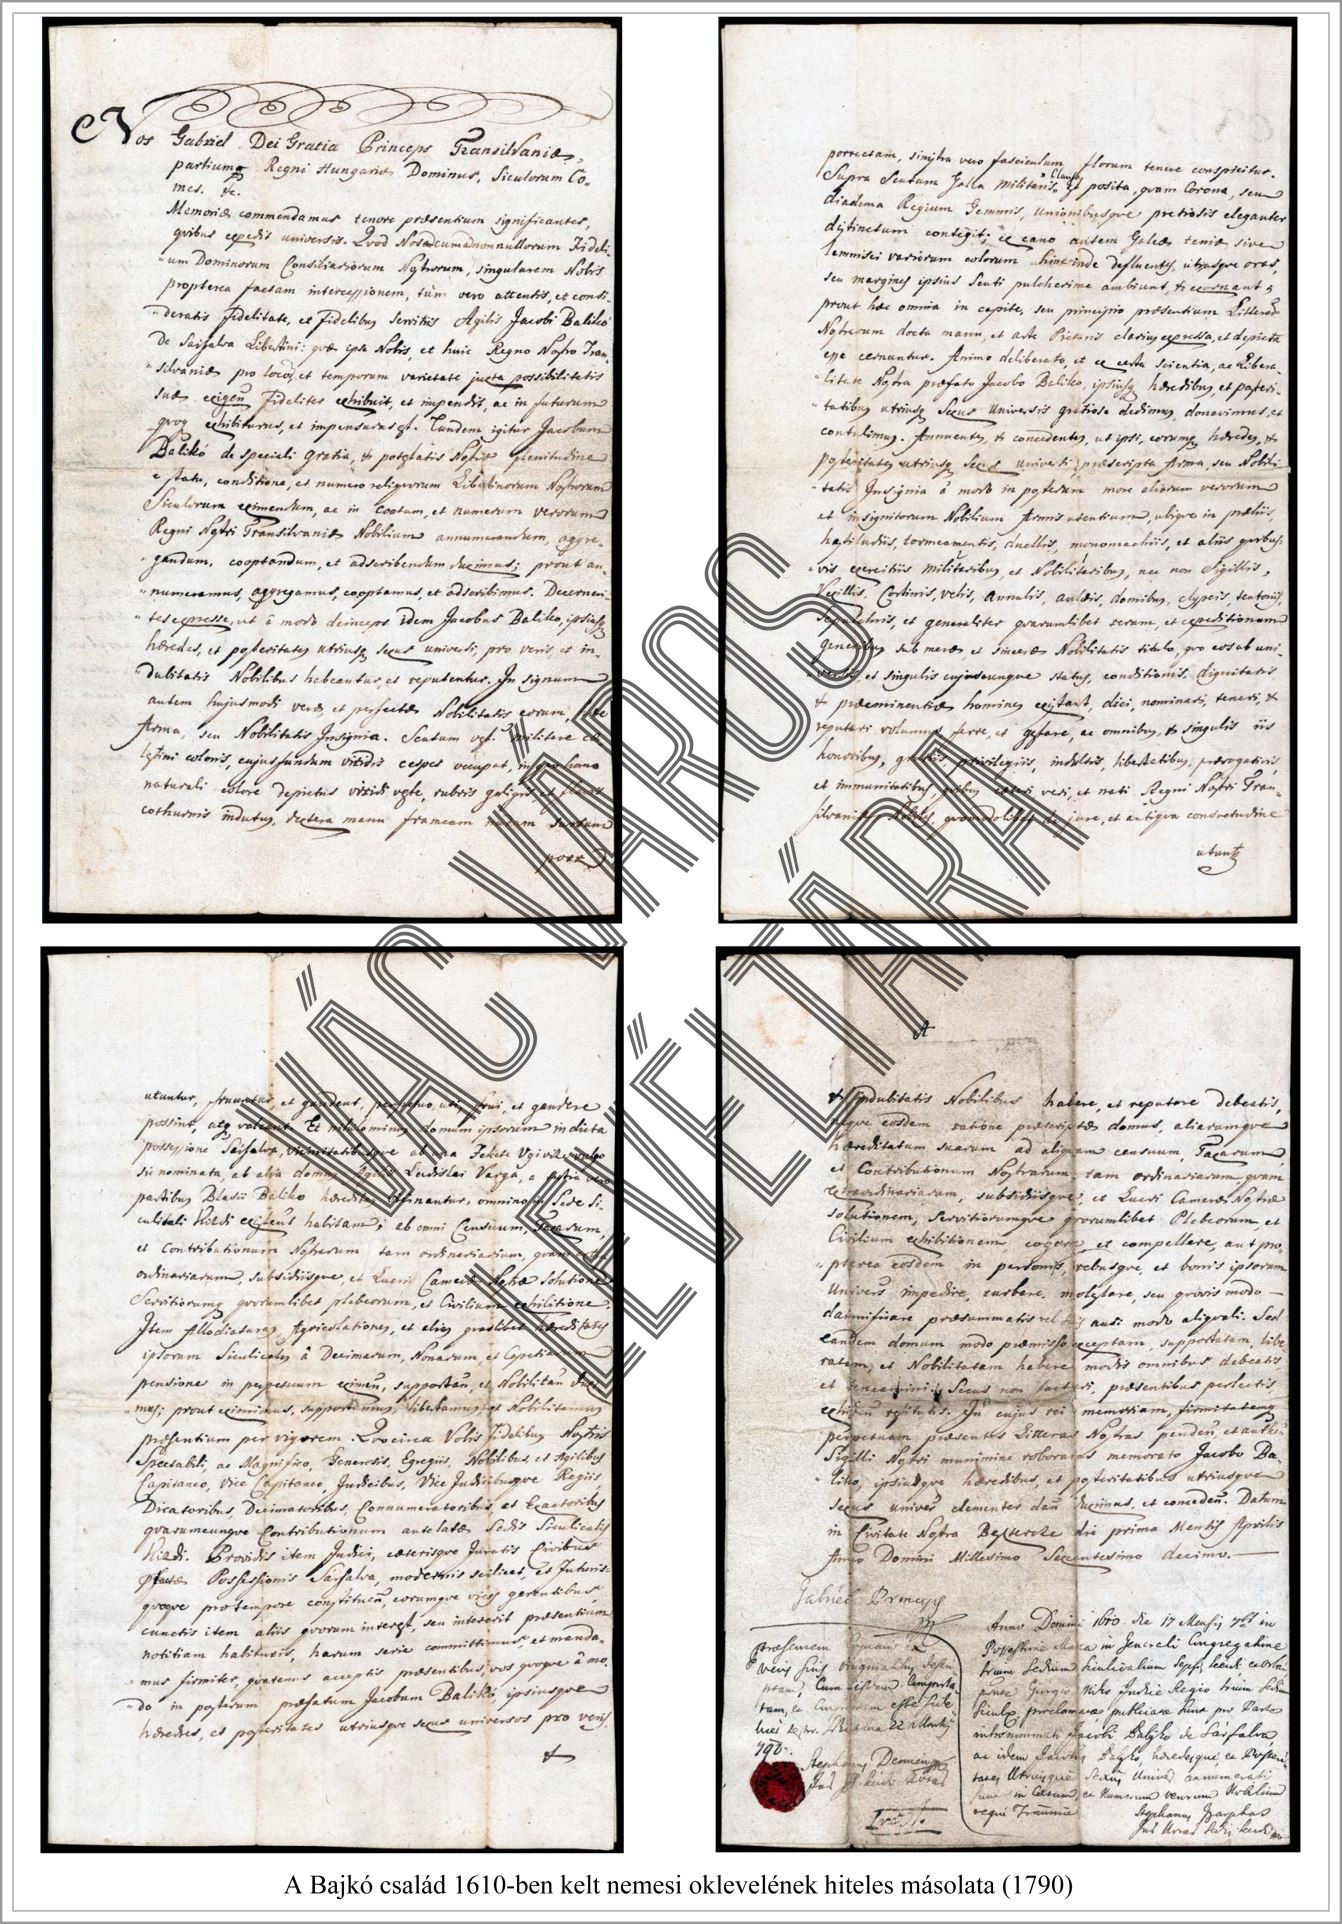 Nos Gabriel Dei Gratia Princeps Transilvaniæ,
partium Regni Hungariæ Dominus, Siculorum Co-
mes. &c.
Memoriæ commendamus tenore præsentium significantes,
quibus expedit universis. Quod Nos nonnullorum Fideli-
um Dominorum Consiliariorum Nostrorum, singularem Nobis
propterea factam intercessionem, tum vero attentis, et consi-
deratis fidelitate, et fidelibus servitiis Agilis Jacobi Balikó
De Sárfalva Libertini: quæ ipse Nobis, et huic Regno Nostro Tran-
silvaniæ pro locor, et temporum varietate juxta possibilitatis
suæ exigen fideliter exhibuit, et impendit, ac in futurum
quoq exhibiturus, et impensurus est. Eundem igitur Jacobum
Balikó de speciali gratia, & potestatis Nostræ plenitudine
e statu, conditione, et numero reliquorum Libertinorum Nostrorum
Siculorum eximendum, ac in Coetum, et numerum verorum
Regni Nostri Transilvaniæ Nobilium annumerandum, aggre-
gandum, cooptandum, et adscribendum duximus; prout an-
numeramus, aggregamus, cooptamus, et adscribimus. Decernen-
tes expresse, ut à modo deinceps idem Jacobus Baliko, ipsiusq
hæredes, et posteritates utriusq sexus universi, pro veris, et in-
dubitatis Nobilibus habeantur, et reputentur. In signum
autem hujusmodi veræ et perfectæ Nobilitatis eorum,
Arma, seu Nobilitatis Insignia. Scutum militare cœ-
lestini coloris, cujus fundum viridis cespes occupat, in quo homo
naturali colore depictus viridi veste, rubris galigis, et
cothurnis indutus, dextera manu frameam
porre
porrectam, sinistra vero fasciculum florum tenere conspicitur.
Supra Scutum Galea militaris Clausa est posita, quam Corona, seu
diadema Regium Gemmis, Unionibusque pretiosis eleganter
distinctum contegit; ex cono autem Galeæ teniæ sive
lemnisci variorum colorum hinc inde defluentes, utrasque oras,
seu margines ipsius Scuti pulcherime ambiunt, & exornant;
prout hæc omnia in capite, seu principio præsentium Litterar
Nostrarum docta manu, et arte Pictoris clarius expressa, et depicta
esse cernuntur. Animo deliberato, et ex certa scientia, ac Libera-
litate Nostra præfato Jacobo Baliko, ipsiusq hæredibus, et posteri-
tatibus utriusq Sexus Universis gratiose dedimus, donavimus, et
contulimus. Annuentes, & concedentes, ut ipsi, eorumq hæredes, &
posteritates utriusq Sexus universi, præscripta Arma, seu Nobili-
tatis Insignia à modo in posterum more aliorum verorum
et insignitorum Nobilium Armis utentium, ubique in præliis,
hastiludiis, torneamentis, duellis, monomachiis, et aliis quibus-
vis exercitiis militaribus, et Nobilitaribus, nec non Sigillis,
Vexillis, Cortinis, velis, annulis, aulæis, domibus, clypeis, tentoriis,
sepulchris, et generaliter quarumlibet rerum, et expeditionum
generibus sub meræ et sinceræ Nobilitatis titulo, quo eos ab uni-
versis, et singulis cujuscunque status, conditionis, dignitatis
& præeminentiæ homines existant, dici, nominari, teneri, &
reputari volumus ferre, et gestare, ac omnibus, & singulis iis
honoribus, gratiis, privilegiis, indultis, libertatibus, prærogativis
et immunitatibus quibus cæteri veri, et nati Regni Nostri Tran-
silvaniæ Nobiles, quomodolibet de jure, et antiqua consvetudine
utunt
utuntur, fruuntur, et gaudent, perpetuo, uti, frui, et gaudere
possint, atq valeant. Et nihilominus domum ipsorum in dicta
possessione Sárfalva, vicinitatibusque ab una Fekete Ugi vize vulgo
sic nominata, ab alia domus Agilis Ladislai Varga, a
partibus Blasii Baliko hæreditas, omnino in Sede Si-
culicali Kézdi existens habitam; ab omni Censuum, Taxarum,
et Contributionum Nostrarum tam ordinariarum, quam extra
ordinariarum, subsidiisque, et Lucri Cameræ Nostræ solutione
Servitiorumq quorumlibet plebeorum, et Civilium exhibitione.
Item Allodiaturas, Agricolationes, et alias quaslibet hæreditates
ipsorum Siculicales à Decimarum, Nonarum, et Capetiarum
pensione in perpetuum eximen, supportan, et Nobilitan duxi-
mus; prout eximimus, supportamus, libertamus, et Nobilitamus
præsentium per vigorem. Quocirca Vobis Fidelibus Nostris
Spectabili, ac Magnifico, Generosis, Egregiis, Nobilibus, et Agilibus
Capitaneo, Vice Capitaneo, Judicibus, Vice Judicibusque Regiis
Dicatoribus, Decimatoribus, Connumeratoribus, et Exactoribus
quarumcunque Contributionum antelatæ Sedis Siculicalis
Kézdi. Providis item Judici, cæterisque Juratis Civibus
Possessionis Sárfalva, modernis scilicet, et futuris-
quoque pro tempore constituen, eorumque vices gerentibus,
cunctis item aliis quorum interest, seu intererit præsentium
notitiam habituris, harum serie committimus, et manda-
mus firmiter, quatenus acceptis præsentibus, vos quoque à mo-
do in posterum præfatum Jacobum Balikó, ipsiusque
hæredes, et posteritates utriusque sexus universos pro veris
&
A
& indubitatis Nobilibus habere, et reputare debeatis,
neque eosdem ratione præscriptæ domus, aliarumque
hæreditatum suarum ad aliquam censuum, Taxarum,
et Contributionum Nostrarum tam ordinariarum, quam
extraordinariarum, subsidiisque, et Lucri Cameræ Nostræ
solutionem, servitiorumque quorumlibet Plebeorum, et
Civilium exhibitionem cogere, et compellere, aut pro-
pterea eosdem in personis, rebusque, et bonis ipsorum
Univers impedire, turbare, molestare, seu quovis modo
damnificare præsummatis vel sitis ausi modo aliquali. Sed
eandem domum modo præmisso exceptam, supportatam, libe-
ratam, et Nobilitatam habere modis omnibus debeatis
et teneamini. Secus non facturi, præsentibus perlectis
exhiben restitutis. In cujus rei memoriam, firmitatemq
perpetuam præsentes Litteras Nostras penden, et authen
Sigilli Nostri munimine roboratas memorato Jacobo Ba-
liko, ipsiusque hæredibus, et posteritatibus utriusque
sexus univers clementer dan duximus, et conceden. Datum
in Civitate Nostra Besztercze die prima Mensis Aprilis
Anno Domini Millesimo Sexcentesimo decimo.
Gabriel Princeps
Præsentem Copiam ex
veris suis Originalibus
Cum eisdem Comporta-
tam, 22
790.
Stephanus
Anno Domini 1610 die 17 Mensis 7br in
Possessione in Generali Congregatione
trium Sedium Siculicalium Sepsi, Kezdi, et Orbai
Judice Regio trium Sedium
Jacobi Balyko de Sárfalva,
ac idem Jacobus Balyko, hæredesque, et Posteri-
tates Utriusque Sexus Univer annumerati
sunt in Cœtum, et Numerum verorum Nobilium
Stephanus
VÁC VÁROS
LEVÉLTÁRA
A Bajkó család 1610-ben kelt nemesi oklevelének hiteles másolata (1790)